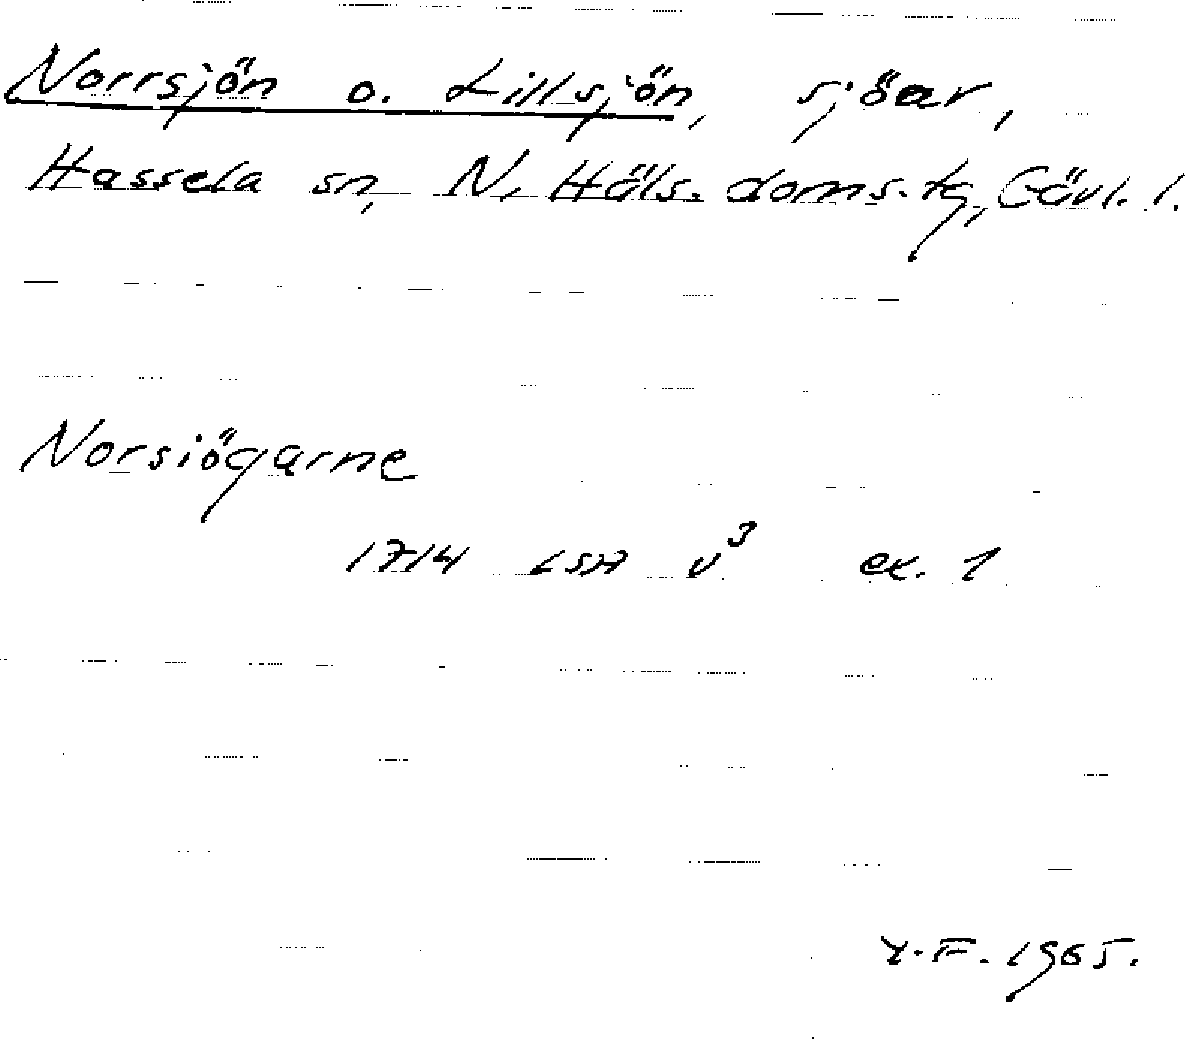 Norrsjön o. Lillsjön, sjöar,
Hassela sn, N. Häls. doms.-tg, Gävl. l.
Norsiögarne
1714 LSA v³ ex. 1
Y.F. 1965.